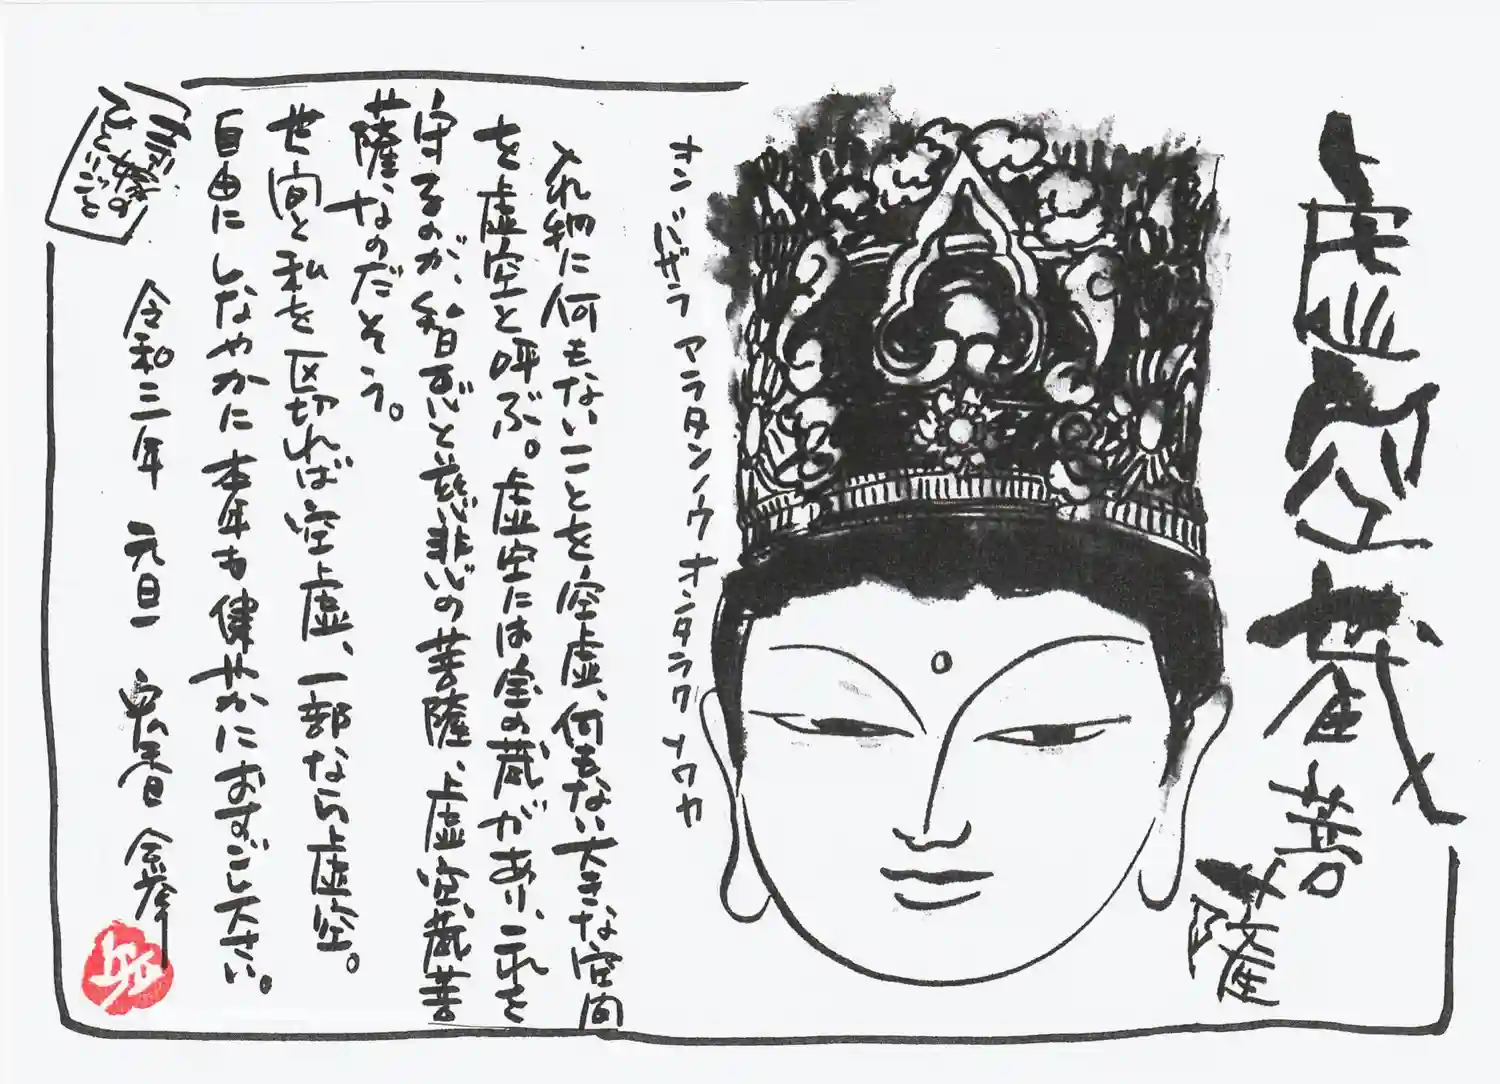 虚空蔵菩薩
オン バザラ アラタンノウ オンタラク ソワカ
入れ物に何もないことを空虚、何もない大きな空間
を虚空と呼ぶ。虚空には宝の蔵があり、これを
守るのが、智恵と慈悲の菩薩、虚空蔵菩
薩、なのだそう。
世間と私を区切れば空虚、一部なら虚空。
自由にしなやかに本年も健やかにおすごし下さい。
令和三年 元旦
ひとりごと